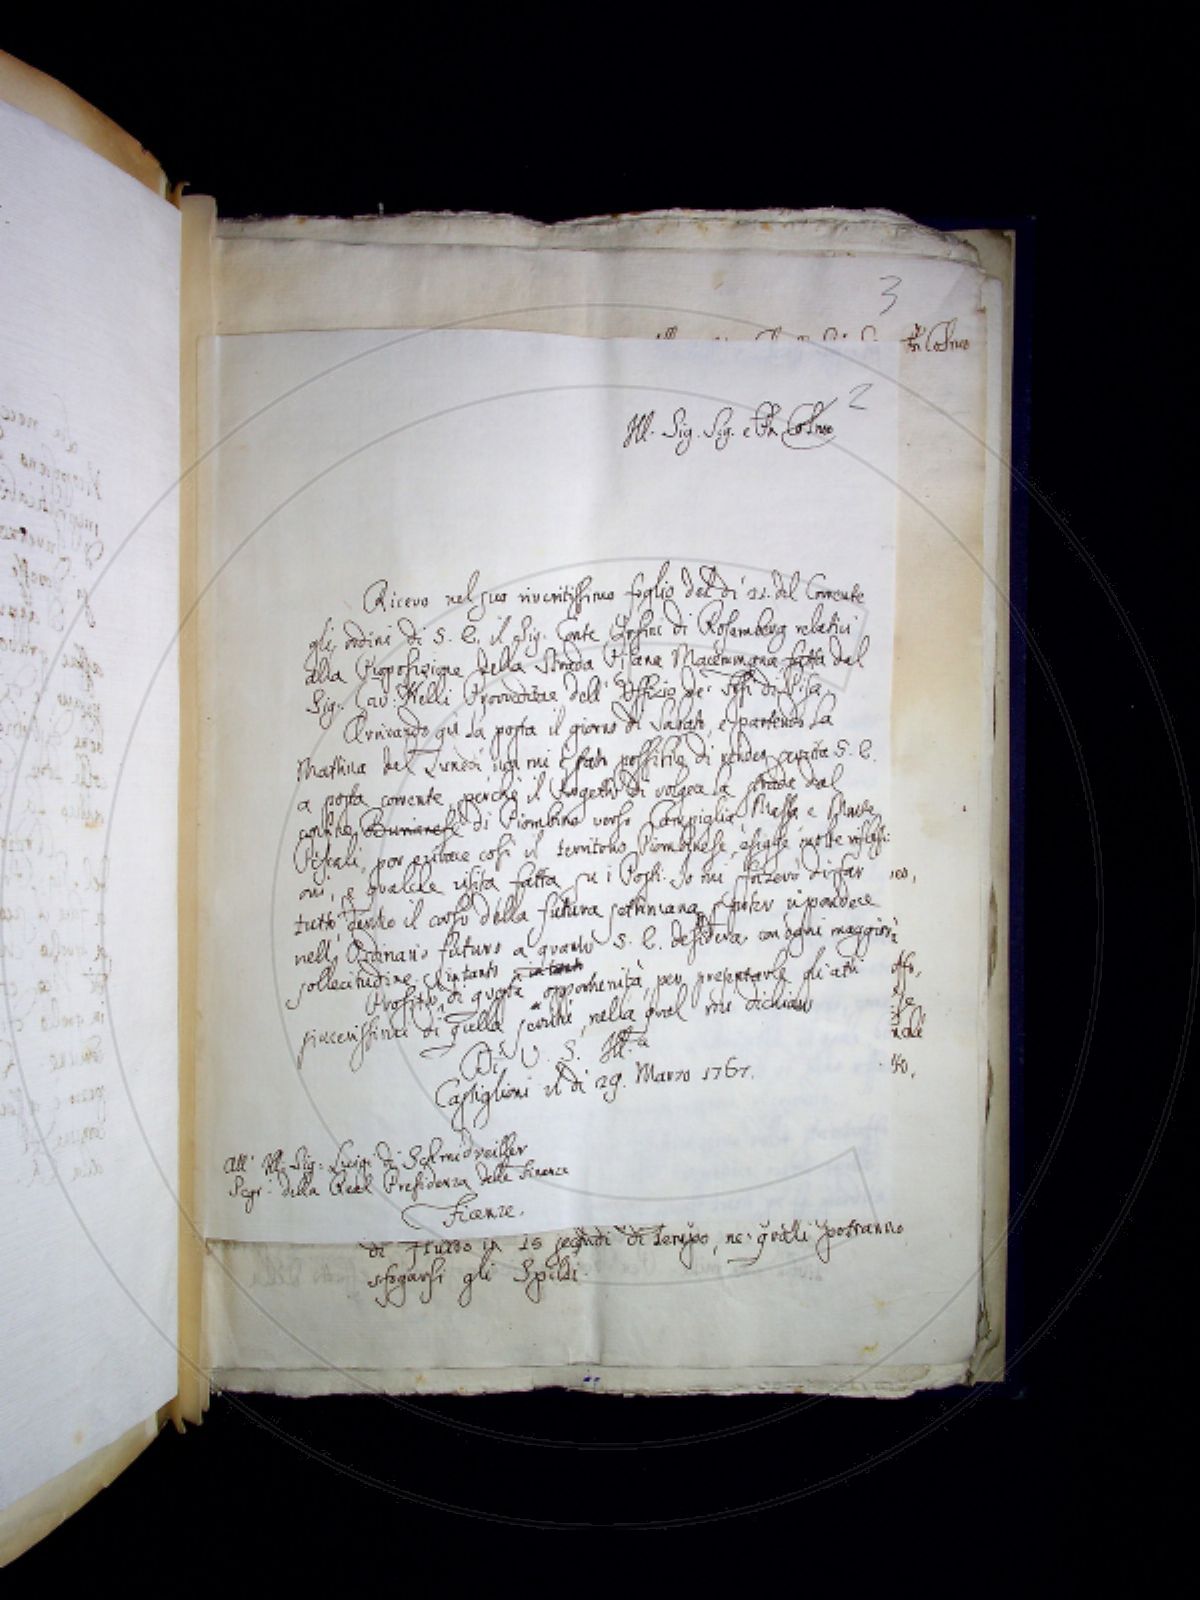 3
2
Ill. Sig. Sig. e Pn. Colmo
Ricevo nel suo riveritissimo foglio del dì 21. del Corrente
gli ordini di S. E. il Sig. Conte Orsini di Rosemberg relativi
alla Proposizione della Strada Pisana Maremmana fatta dal
Sig. Cav. Nelli Provveditore dell' Uffizio de' Fossi di Pisa
Arrivando qui la posta il giorno di Sabato, e partendo la
Mattina del Lunedì non mi è stato possibile di render servita S. E.
a posta corrente, perchè il Progetto di volger la strada dal
confine Burianese di Piombino verso Campiglia Massa e
Piscali, per evitare così il territorio Piombinese, esigge molte riflessi-
oni, e qualche visita fatta su i Posti. Io mi farò di far
tutto dentro il corso della futura settimana, e rispondere
nell' Ordinario futuro a quanto S. E. desidera con ogni maggior
sollecitudine. Intanto in tanto
Profitto di questa opportunità, per presentarle gli atti
sincerissimi di quella servitù, nella qual mi dichiaro
Di V. S. Ill.ma
Castiglioni il dì 29. Marzo 1767.
All' Ill. Sig. Luigi di Schmidveiller
Segr. della Real Presidenza delle Finanze
Firenze.
di flusso in 15 secondi di tempo, ne' quali potranno
sfogarsi gli Spildi.